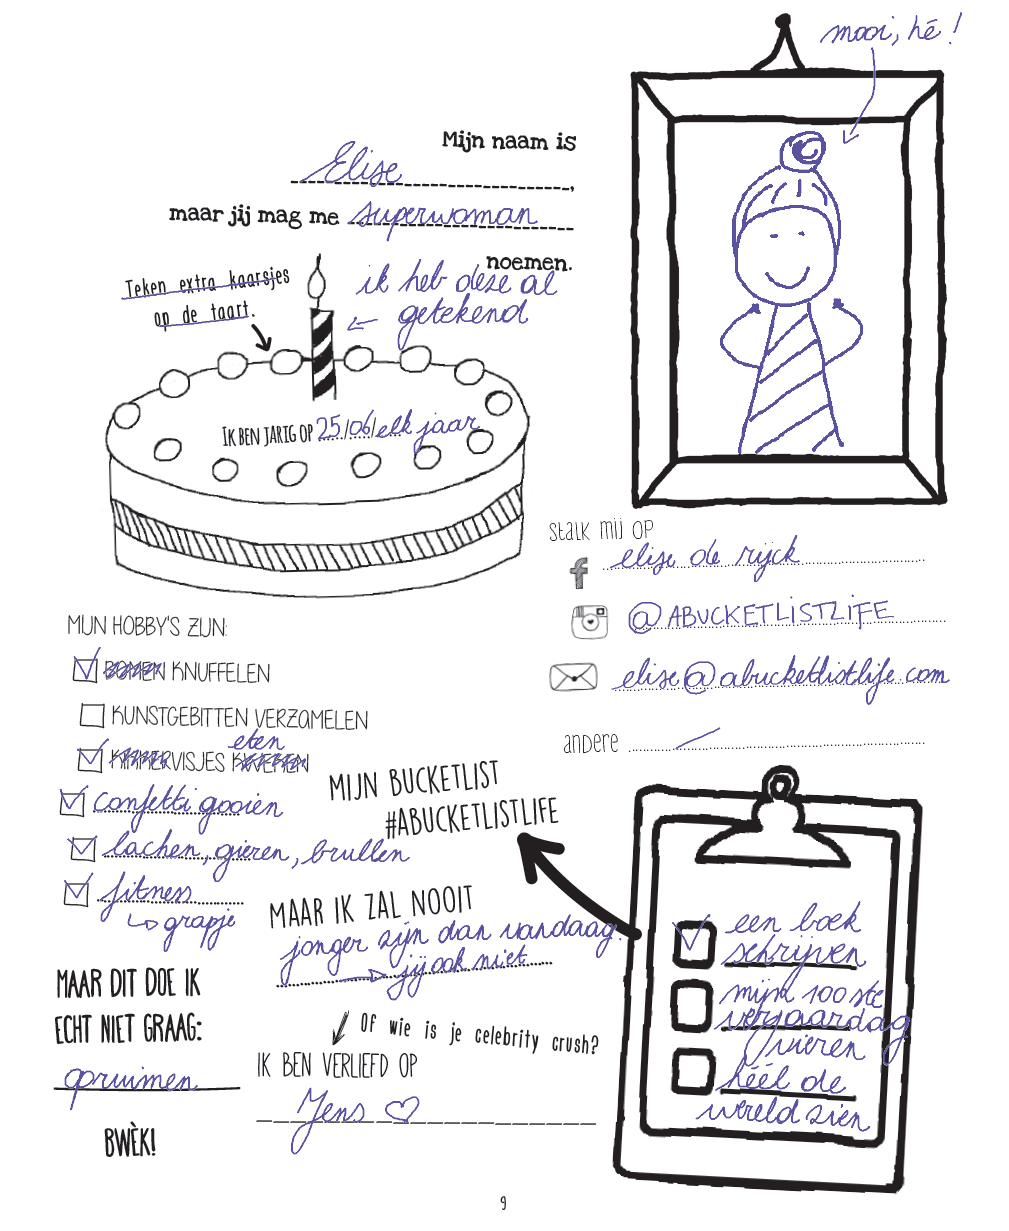 mooi, hé !
Mijn naam is
Elise,
maar jij mag me superwoman
noemen.
Teken extra kaarsjes
op de taart.
ik heb deze al
getekend
IK BEN JARIG OP 25/06/elk jaar
STALK MIJ OP
f elise de rijck
@ABUCKETLISTLIFE
elise@abucketlistlife.com
ANDERE /
MIJN HOBBY'S ZIJN:
BOMEN KNUFFELEN
KUNSTGEBITTEN VERZAMELEN
eten
KIKKERVISJES KWEKEN
confetti gooien
lachen, gieren, brullen
fitness
grapje
MIJN BUCKETLIST
#ABUCKETLISTLIFE
MAAR IK ZAL NOOIT
jonger zijn dan vandaag.
jij ook niet
MAAR DIT DOE IK
ECHT NIET GRAAG:
opruimen
BWÈK!
Of wie is je celebrity crush?
IK BEN VERLIEFD OP
Jens
een boek
schrijven
mijn 100ste
verjaardag
vieren
héél de
wereld zien
9